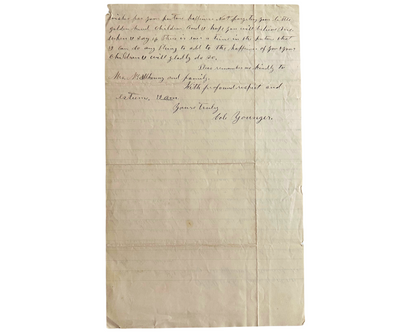 wishes for your future happiness. Not forgetting your little
golden haired children. And I hope you will believe me
when I say if there is ever a time in the future that
I can do any thing to add to the happiness of you or your
children I will gladly do so.
Also remember me kindly to
Mr. and family.
With profound respect and
esteem, I am
Yours truly
Cole Younger.